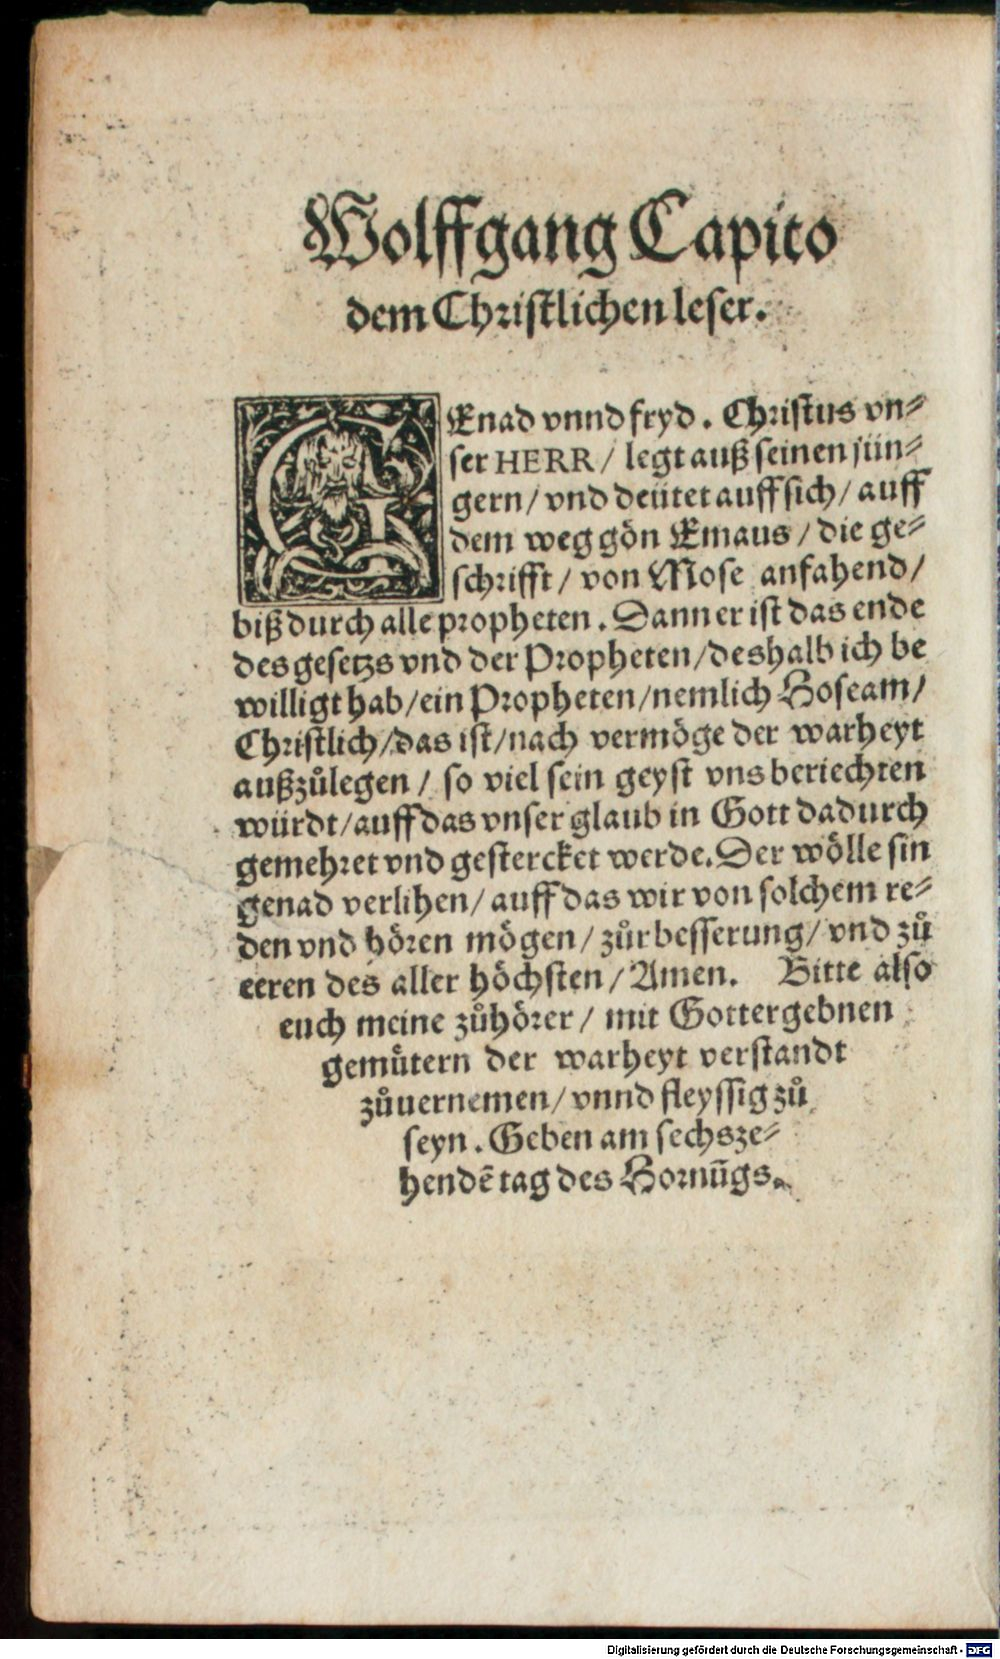 Wolffgang Capito
dem Christlichen leser.
GEnad vnnd fryd. Christus vn⸗
ser HERR / legt auß seinen jün⸗
gern / vnd deütet auff sich / auff
dem weg gön Emaus / die ge⸗
schrifft / von Mose anfahend /
biß durch alle propheten. Dann er ist das ende
des gesetzs vnd der Propheten / deshalb ich be
willigt hab / ein Propheten / nemlich Hoseam /
Christlich / das ist / nach vermöge der warheyt
außzůlegen / so viel sein geyst vns beriechten
würdt / auff das vnser glaub in Gott dadurch
gemehret vnd gestercket werde. Der wölle sin
genad verlihen / auff das wir von solchem re⸗
den vnd hören mögen / zůr besserung / vnd zů
eeren des aller höchsten / Amen. Bitte also
euch meine zůhörer / mit Gottergebnen
gemütern der warheyt verstandt
zůuernemen / vnnd fleyssig zů
seyn. Geben am sechsze⸗
hendē tag des Hornūgs.
Digitalisierung gefördert durch die Deutsche Forschungsgemeinschaft - DFG